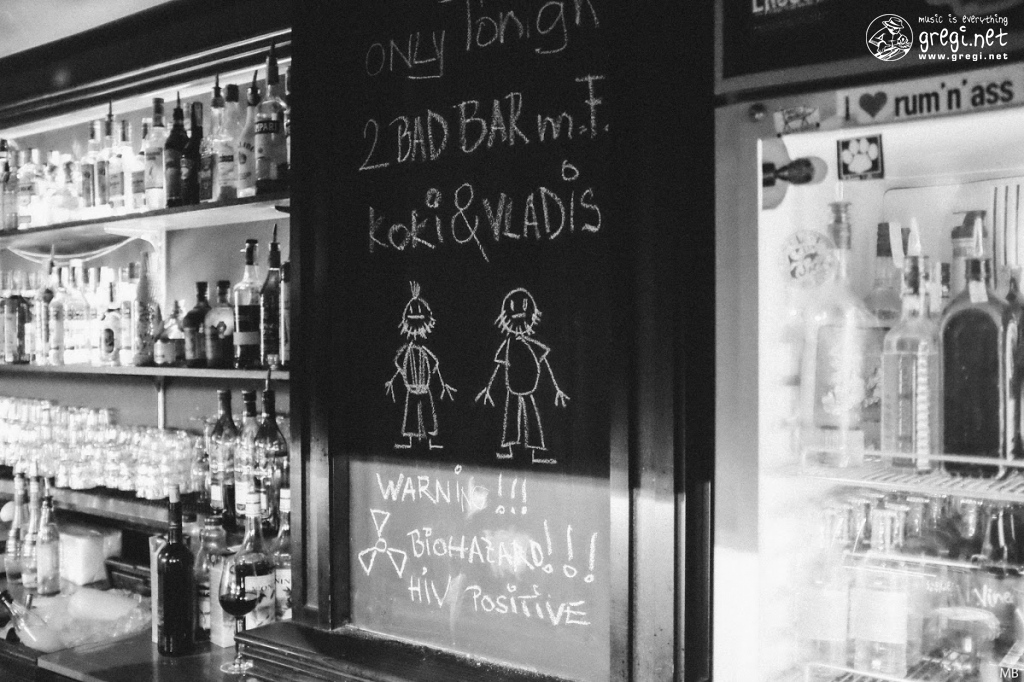 ONLY Tonigh
2 BAD BAR m.F.
KOKi & VLADiS
WARNiN !!!
BiOHAZARD!!!
HiV POSiTiVE
music is everything
gregi.net
www.gregi.net
I ♥ rum'n'ass
Vine
MB